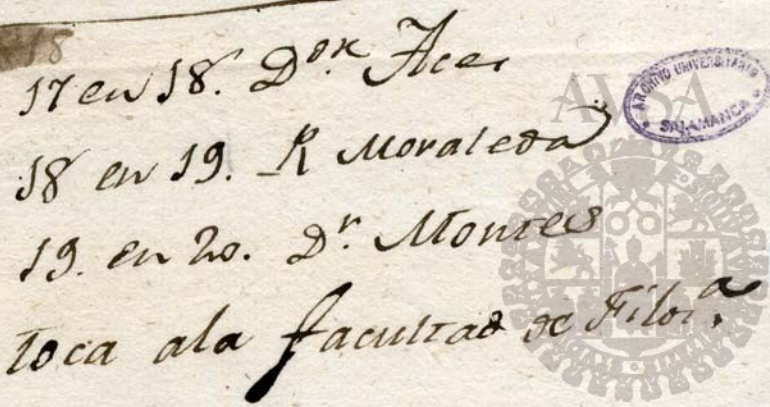 18
17 en 18. Dor. Aces
18 en 19. R Moraleda
19. en 20. Dr. Montes
toca ala facultad de Filoſ.a
ARCHIVO UNIVERSITARIO
SALAMANCA
AVSA